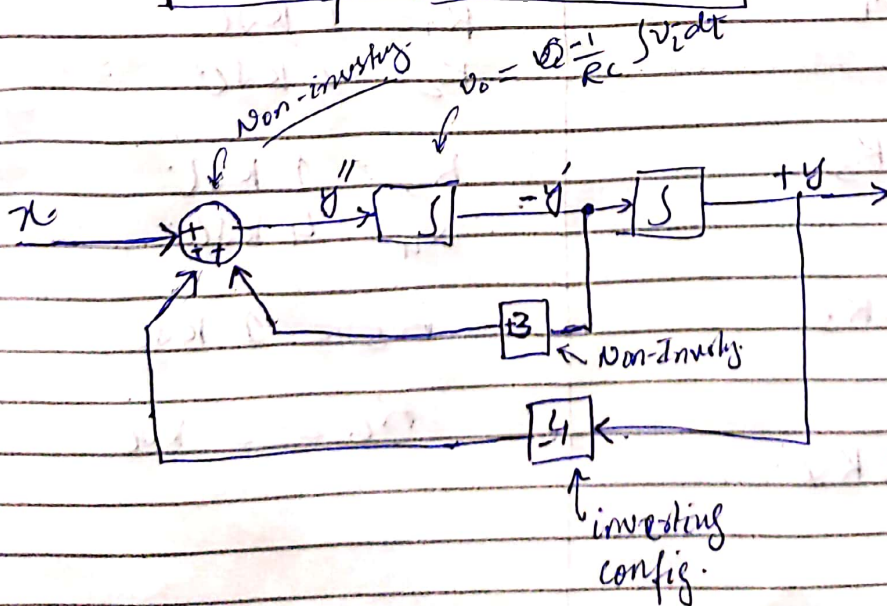 Non-inverting.
v₀ = -1/RC ∫vᵢdt
x
+
++
y''
∫
-y'
∫
+y
+3
Non-Inverting.
-4
inverting
config.